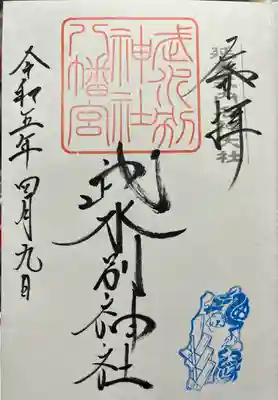 奉拝
武水別神社
八幡宮
武水別神社
令和五年四月九日